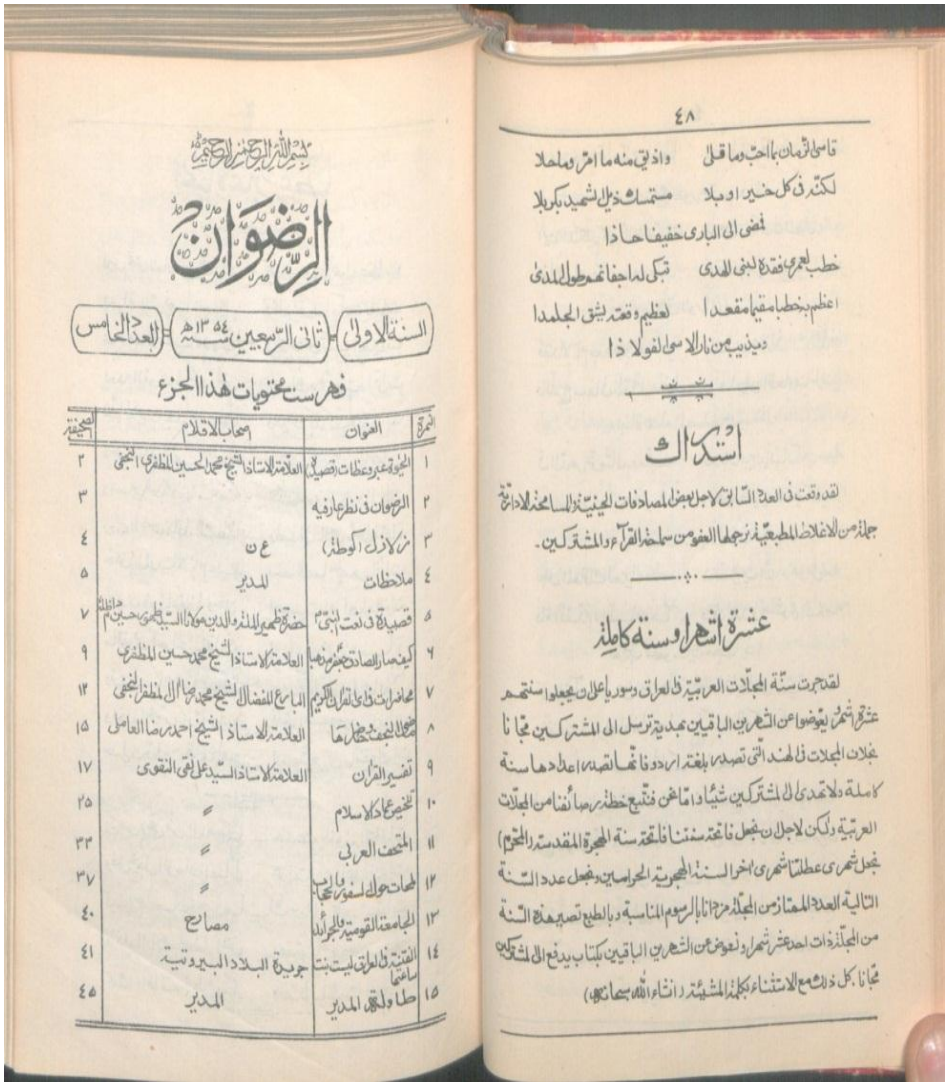 ٤٨
قاسى الزمان بما احب وما قلى واذيق منه ما امر وما حلا
لكنه فى كل خير او بلا مستمسك ذيل الشهيد بكربلا
فمضى الى البارى خفيفا حاذا
خطب لعمرى فقده لبنى الهدى تبكى له اجفانهم طول المدى
اعظم به خطبا مقيما مقعدا لعظيم وقعته يشق الجلمدا
ويذيب من نار الاسى الفولاذا
استدراك
لقد وقعت فى العدد السابق لاجل بعض المصادفات الحينية والمسامحة الادارية
جملة من الاغلاط المطبعية نرجو لها العفو من سماحة القرآء والمشتركين -
عشرة اشهر او سنة كاملة
لقد جرت سنة المجلات العربية فى العراق وسوريا على ان يجعلوا سنتهم
عشرة اشهر ويعوضوا عن الشهرين الباقيين بهدية ترسل الى المشتركين مجانا
بخلاف المجلات فى الهند التى تصدر بلغة اردو فانها تصدر اعدادها سنة
كاملة ولا تهدى الى المشتركين شيئا واما نحن فنتبع خطة رصائفنا من المجلات
العربية ولكن لاجل ان نجعل فاتحة سنتنا فاتحة سنة الهجرة المقدسة (المحرم)
نجعل شهرى عطلتنا شهرى اخر السنة الهجرية الحرامين ونجعل عدد السنة
التالية العدد الممتاز من المجلة مزدانا بالرسوم المناسبة وبالطبع تصير هذه السنة
من المجلة ذات احد عشر شهرا ونعوض عن الشهرين الباقيين بكتاب يدفع الى المشتركين
مجانا كل ذلك مع الاستثناء بكلمة المشيئة (انشاء الله سبحانه)
بسم الله الرحمن الرحيم
الرضوان
السنة الاولى - ثانى الربيعين سنة ١٣٥٤ھ - العدد الخامس
فهرست محتويات هذا الجزء
النمرة العنوان اصحاب الاقلام الصحيفة
١ عبر وعظات (قصيدة) العلامة الاستاذ الشيخ محمد الحسين المظفرى النجفى ٢
٢ الرضوان فى نظر عارفيه ٣
٣ زلازل (كوطة) ع ن ٤
٤ ملاحظات المدير ٥
٥ قصيدة فى نعت النبى ص حضرة ظهير الملة والدين مولانا السيد ظهور حسين دام ظله ٧
٦ كيف صار الصادق جعفر مذهبا العلامة الاستاذ الشيخ محمد حسين المظفرى ٩
٧ محاضرات فى اى القرآن الكريم البارع المفضال الشيخ محمد رضا ال المظفر النجفى ١٢
٨ ماضى النجف وحاضرها العلامة الاستاذ الشيخ احمد رضا العامل ١٥
٩ تفسير القرآن العلامة الاستاذ السيد على نقى النقوى ١٧
١٠ تلخيص عماد الاسلام 〃 ٢٥
١١ المتحف العربى 〃 ٣٣
١٢ لمحات حول السفور والحجاب 〃 ٣٧
١٣ الجامعة القومية والجرائد مصارح ٤٠
١٤ الفتنة فى العراق ليست بنت ساعتها جريدة البلاد البيروتية ٤١
١٥ طاولة المدير المدير ٤٥